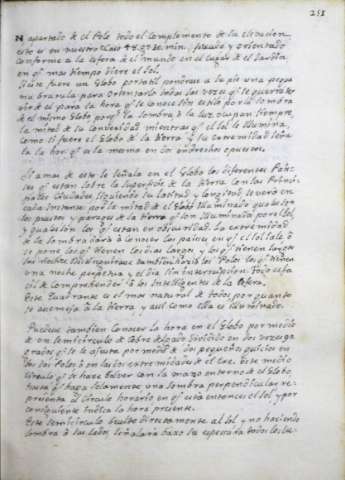 251
apartado de el Polo todo el complemento de la elevacion
esto es en nuestro caso 48. gr. 50. min. fixado y orientado
conforme a la esfera de el mundo en el lugar de el Jardin
en q.e mas tiempo diere el sol.
Si este fuere un Globo portatil pondrase a su pie una peque
ña brujula para orientarlo todas las vezes q.e se quiera ser
de el para la hora q.e se conoce sin estilo por la sombra
de el mismo Globo porq.e la sombra, o la luz ocupan siempre
la mitad de su convexidad mientras q.e el sol le illumina
como si fuere el Globo de la tierra y su extremidad seña
la la hora q.e es la mesma en los dos opuestos.
A mas de esto se señala en el Globo los diferentes Paise
ses q.e estan sobre la superficie de la tierra con las Princi
pales Ciudades siguiendo su latitud y longitud se verá en
cada instante por la mitad de el Globo Illuminado quales son
los puestos y parages de la tierra q.e son Illuminados por el sol
y quales son los q.e estan en obscuridad. La extremidad
de la sombra dará a conocer los paises en q.e el sol sale ò
se pone los q.e tienen los dias largos y los q.e tienen largas
las noches. Distinguiranse tambien hacia los Polos los q.e tienen
una noche perpetua y el dia sin interrupcion. Todo es fa
cil de comprehender à los Inteligentes de la Esfera.
Este Quadrante es el mas natural de todos por quanto
se asemeja à la tierra, y assi como ella es illuminado.
Puedese tambien conocer la hora en el Globo por medio
de un semicirculo de cobre delgado dividido en dos vezes 90
grados q.e se le ajusta por medio de dos pequeños quicios en
los dos Polos ò en las dos extremidades de el exe. Este medio
circulo q.e se hace bolver con la mano entorno de el Globo
hasta q.e haga solamente una sombra perpendicular re-
presenta el Circulo horario en q.e esta entonces el sol y por
consiguiente indica la hora presente.
Este semicirculo buelto directamente al sol y no haciendo
sombra à sus lados señalará baxo su espesura todos los lu-